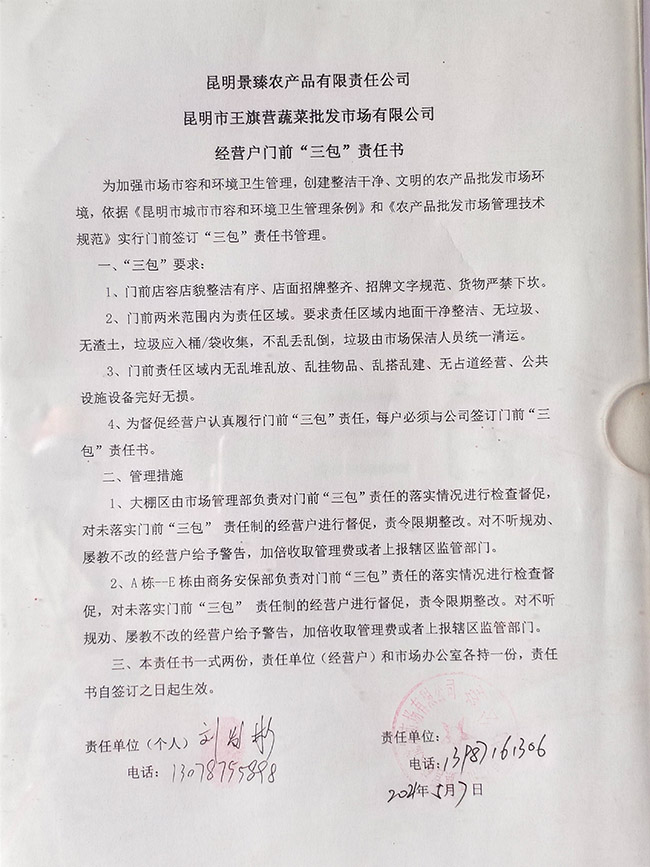 昆明景臻农产品有限责任公司
昆明市王旗营蔬菜批发市场有限公司
经营户门前“三包”责任书
为加强市场市容和环境卫生管理，创建整洁干净、文明的农产品批发市场环
境，依据《昆明市城市市容和环境卫生管理条例》和《农产品批发市场管理技术
规范》实行门前签订“三包”责任书管理。
一、“三包”要求：
1、门前店容店貌整洁有序、店面招牌整齐、招牌文字规范、货物严禁下坎。
2、门前两米范围内为责任区域。要求责任区域内地面干净整洁、无垃圾、
无渣土，垃圾应入桶/袋收集，不乱丢乱倒，垃圾由市场保洁人员统一清运。
3、门前责任区域内无乱堆乱放、乱挂物品、乱搭乱建、无占道经营、公共
设施设备完好无损。
4、为督促经营户认真履行门前“三包”责任，每户必须与公司签订门前“三
包”责任书。
二、管理措施
1、大棚区由市场管理部负责对门前“三包”责任的落实情况进行检查督促，
对未落实门前“三包” 责任制的经营户进行督促，责令限期整改。对不听规劝、
屡教不改的经营户给予警告，加倍收取管理费或者上报辖区监管部门。
2、A 栋--E 栋由商务安保部负责对门前“三包”责任的落实情况进行检查督
促，对未落实门前“三包” 责任制的经营户进行督促，责令限期整改。对不听
规劝、屡教不改的经营户给予警告，加倍收取管理费或者上报辖区监管部门。
三、本责任书一式两份，责任单位（经营户）和市场办公室各持一份，责任
书自签订之日起生效。
责任单位（个人）刘
责任单位：
电话：13078755898
电话：13987161306
2021年5月7日